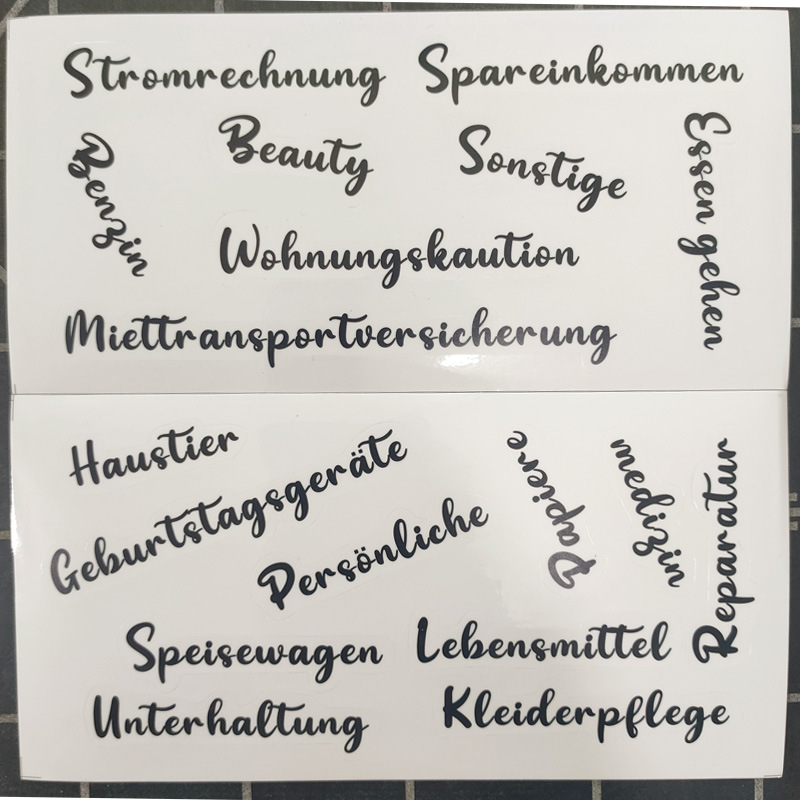 Stromrechnung
Spareinkommen
Benzin
Beauty
Sonstige
Essen gehen
Wohnungskaution
Miettransportversicherung
Haustier
Geburtstagsgeräte
Persönliche
Papiere
medizin
Reparatur
Speisewagen
Lebensmittel
Unterhaltung
Kleiderpflege